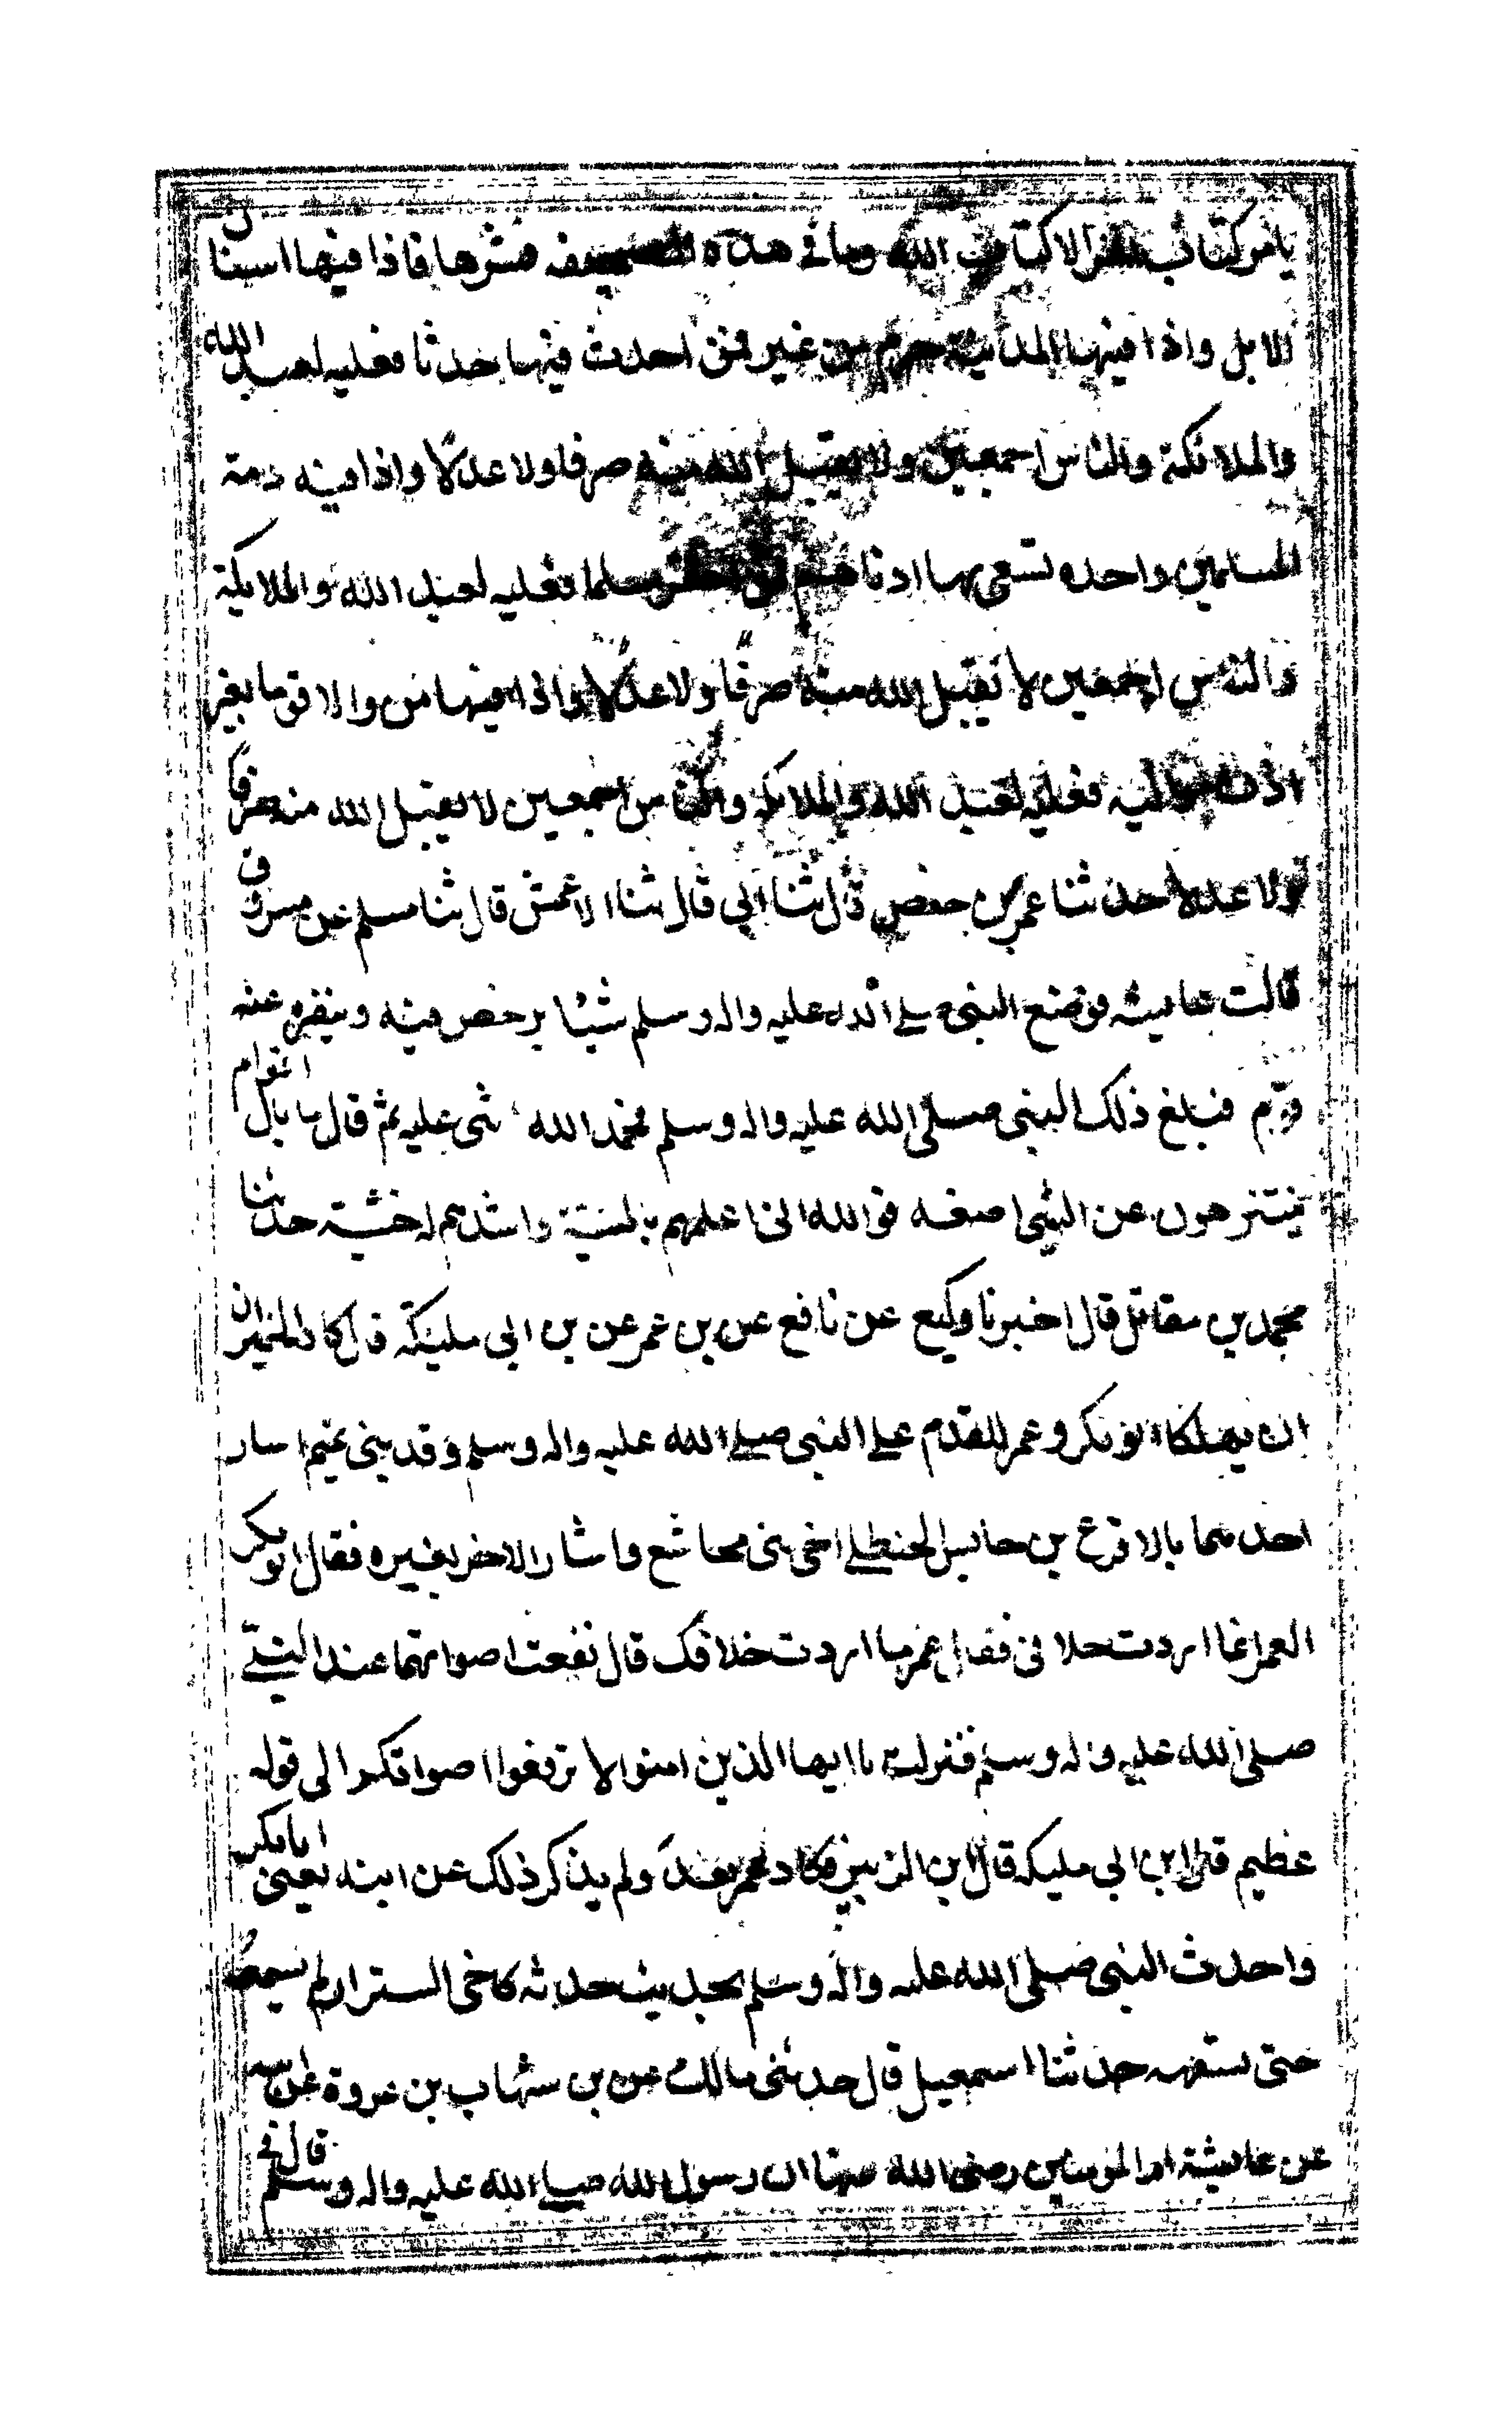 يامر كتاب يقرأ الا كتاب الله وما في هذه الصحيفه فنشرها فاذا فيها اسنان
الابل واذا فيها المدينة حرم من عير فمن احدث فيها حدثا فعليه لعنه الله
والملائكة والناس اجمعين ولا يقبل الله منه صرفا ولا عدلا واذا فيه ذمة
المسلمين واحده تسعى بها ادناهم فمن اخفر مسلما فعليه لعنة الله والملايكة
والناس اجمعين لا يقبل الله منه صرفا ولا عدلا واذا فيها من والا قوما بغير
اذن مواليه فعليه لعنة الله والملايكة والناس اجمعين لا يقبل الله منه صرفا
ولا عدلا حدثنا عمر بن حفص قال ثنا ابي قال ثنا الاعمش قال ثنا مسلم عن مسروق
قالت عايشه وضع النبي صلے الله عليه واله وسلم شيئا يرخص فيه وينفره عنه
قوم فبلغ ذلك النبي صلى الله عليه واله وسلم فحمد الله ثنى عليه ثم قال ما بال اقوام
يتنزهون عن الشي اصنعه فوالله اني اعلمهم بالسنية واشدهم له خشية حدثنا
محمد بن مقاتل قال اخبرنا وكيع عن نافع عن بن عمر عن بن ابي مليكة قال كاد الخيران
ان يهلكا ابو بكر وعمر للقدم علي النبي صلے الله عليه واله وسلم وفد بني تميم اسار
احدهما بالاقرع بن حابس الحنظلے اخي بني مجاشع واشار الاخر بغيره فقال ابو بكر
العمر انما اردت خلافي فقال عمر ما اردت خلافك قال نفعت اصواتهما عند النبي
صلى الله عليه واله وسلم فنزلت يا ايها الذين امنوا لا ترفعوا اصواتكم الى قوله
عظيم قال ابن ابي مليكه قال ابن الزبير فكاد عمر بعد ولم يذكر ذلك عن ابيه يعني ابا بكر
واحدث النبي صلى الله عليه واله وسلم بحديث حدثه كاخي الستر ان لم يسمعه
حتى يستفهمه حدثنا اسمعيل قال حدثني مالك عن بن شهاب بن عروة عن ابيه
عن عايشة ام المومنين رضي الله عنها ان رسول الله صلے الله عليه واله وسلم قال في